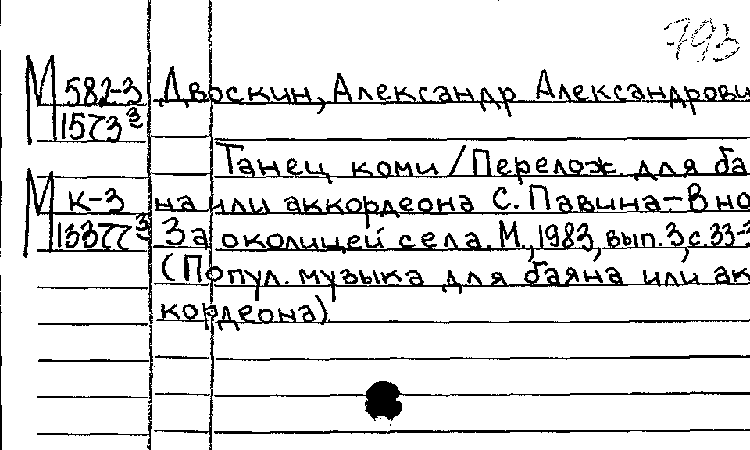 793
М 582-3 Двоскин, Александр Александрови
1573³
Танец коми / Перелож для ба
М к-3 на или аккордеона С. Павина – В но
13377³ За околицей села. М., 1983, вып. 3, с. 33-
(Попул. музыка для баяна или ак
кордеона)